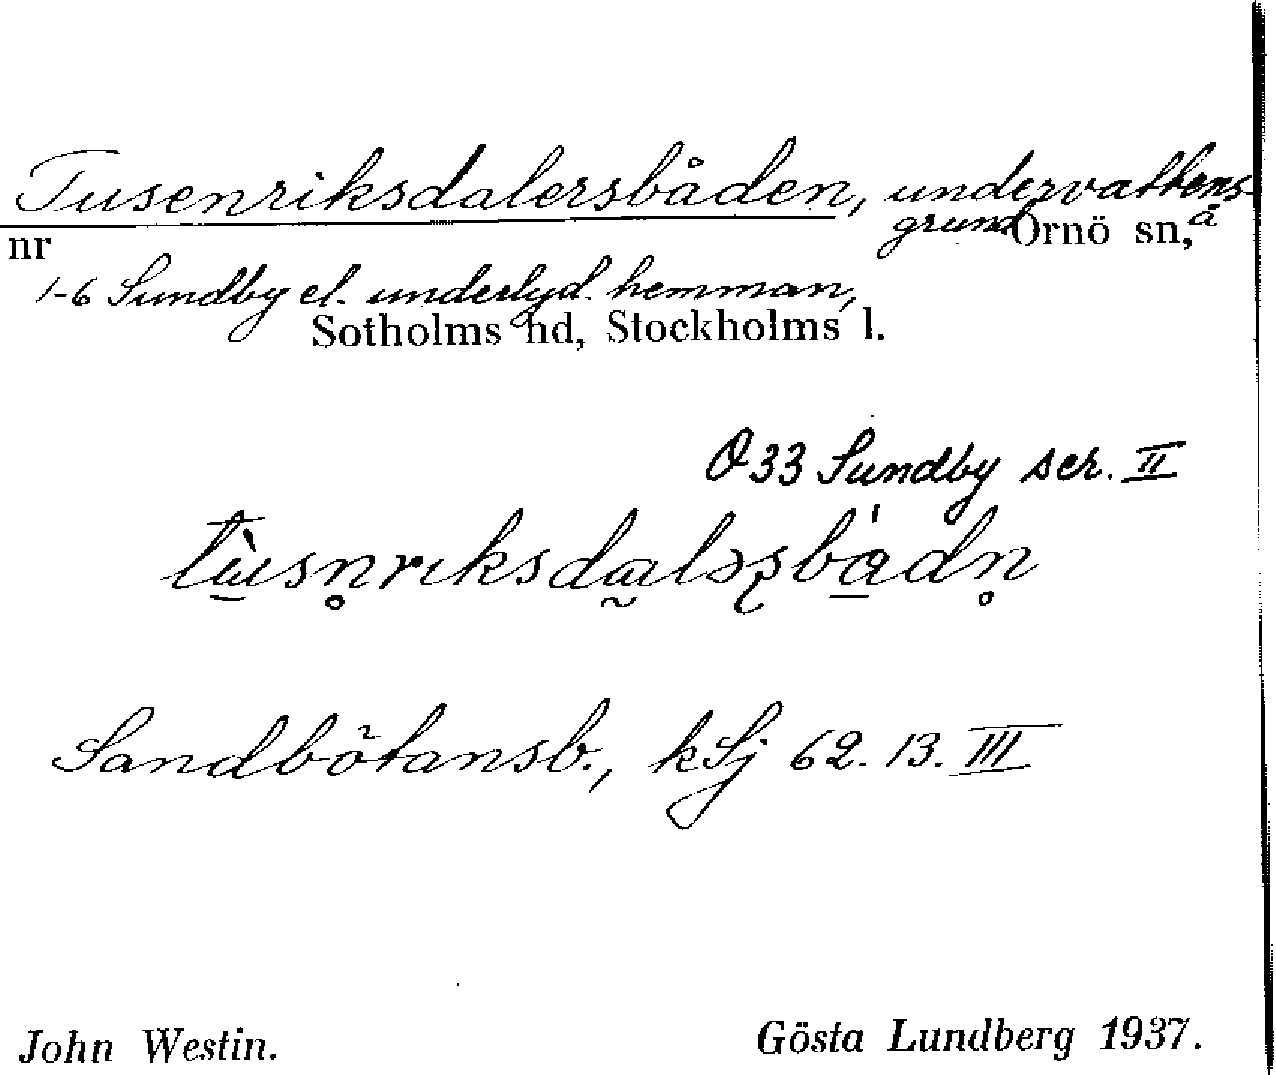 Tusenriksdalersbåden, undervattens-
grund Ornö sn, å
nr
1-6 Sundby el. underlyd. hemman,
Sotholms hd, Stockholms l.
O33 Sundby ser. II
Sandbötansb., kSj 62. 13. III
John Westin. Gösta Lundberg 1937.